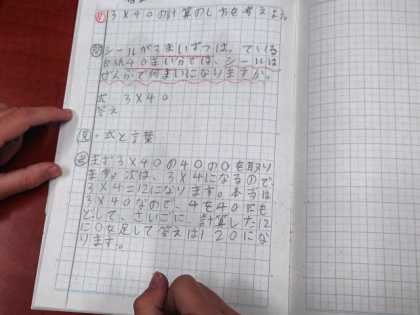 め 3×40の計算のし方を考えよう。
問 シールが3まいずつは、ている
台紙40まいぶでは、シールは
ぜんぶで何まいになりますか。
式 3×40
答え
見・式と言葉
まず3×40の40の0を取り
ます。次は、3×4になるので
3×4=12になります。本当は
3×40なので、4を40にも
どして、さいごに、計算した12
に0を足して答えは120にな
ります。